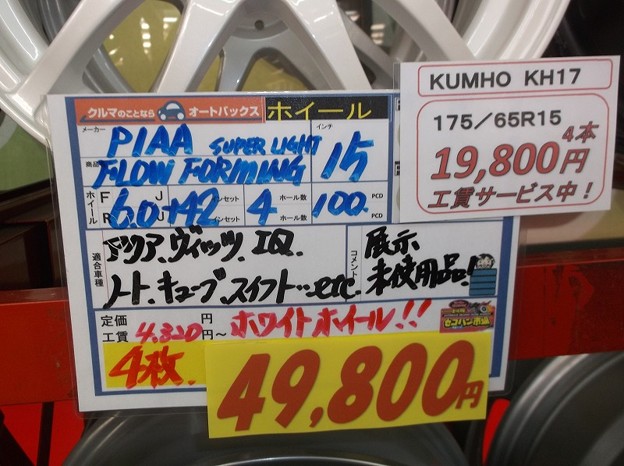 クルマのことなら オートバックス ホイール
メーカー PIAA SUPER LIGHT インチ
商品 FLOW FORMING 15
ホイール F J インセット ホール数 PCD
6.0 +42 4 100.
R J インセット ホール数 PCD
適合車種 アクア.ヴィッツ.IQ.
ノート.キューブ.スイフト…etc
コメント 展示
未使用品!
定価 円
工賃 4.320円～ ホワイトホイール!!
4枚.
49,800円
KUMHO KH17
175／65R15
4本
19,800円
工賃サービス中！